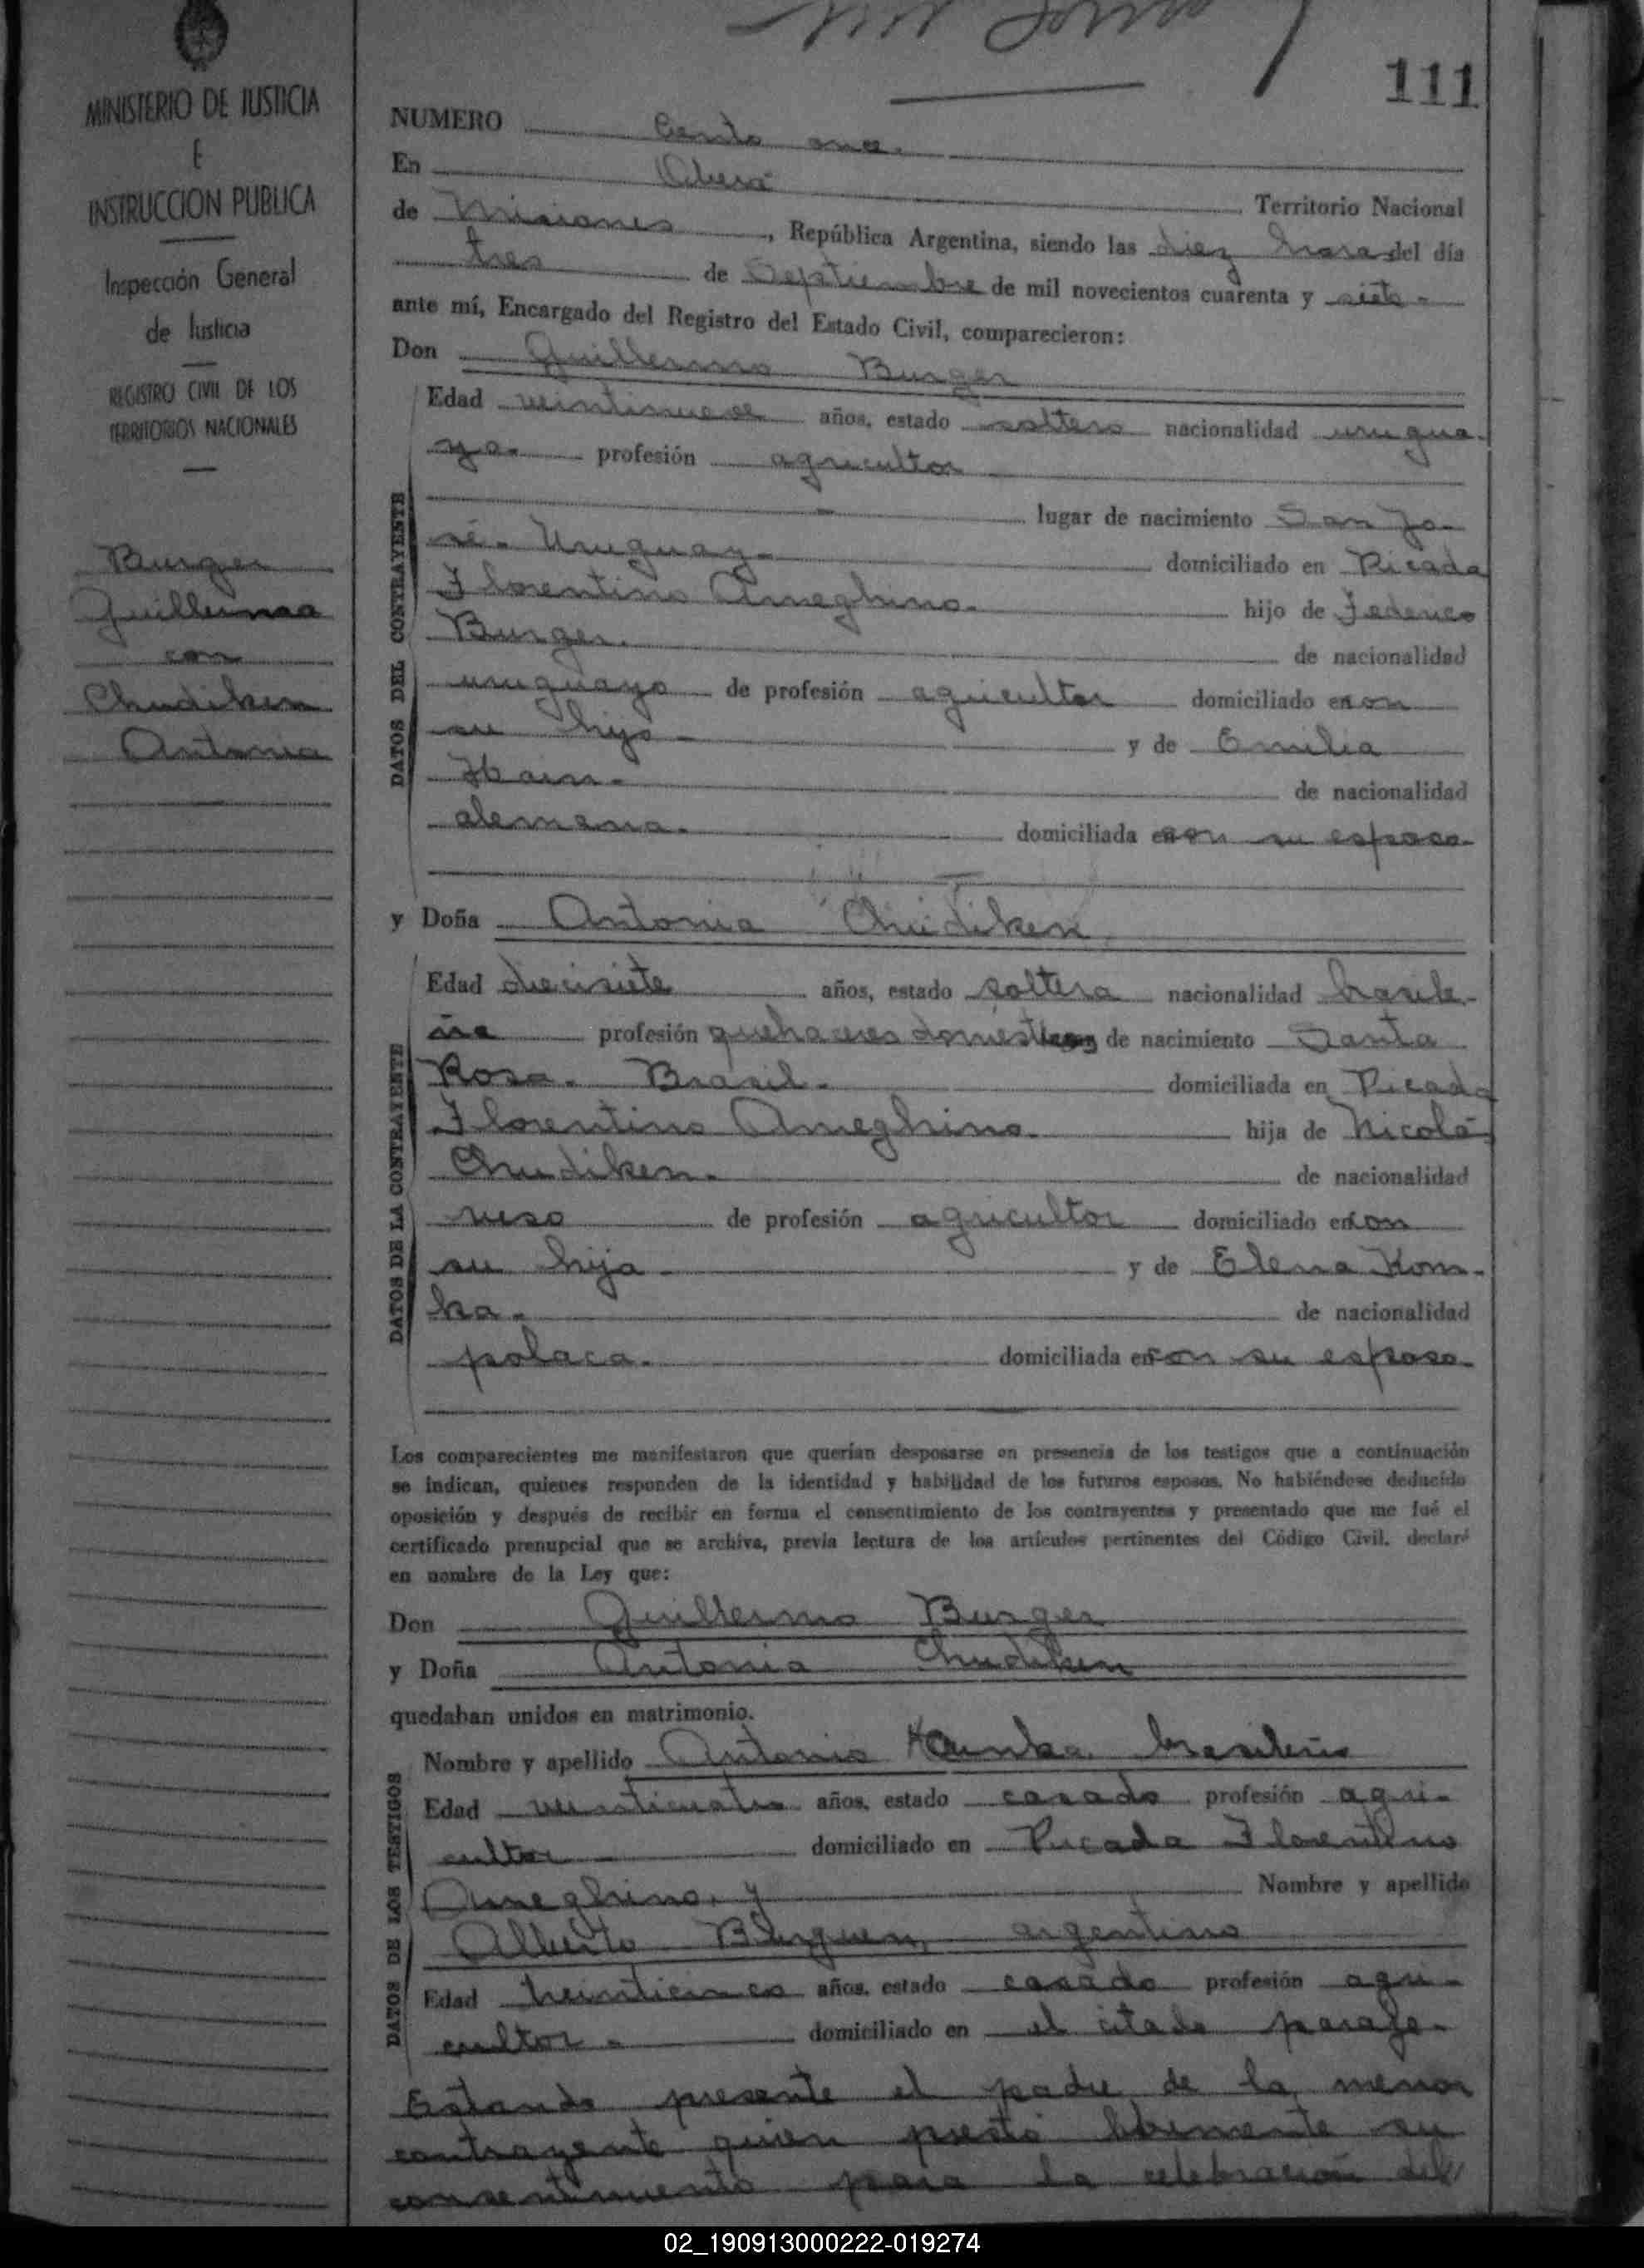 111
MINISTERIO DE JUSTICIA
E
INSTRUCCION PUBLICA
Inspección General
de Justicia
REGISTRO CIVIL DE LOS
TERRITORIOS NACIONALES
Burger
Guillermo
con
Chudiken
Antonia
NUMERO Ciento once.
En Oberá Territorio Nacional
de Misiones, República Argentina, siendo las diez horas del día
tres de Septiembre de mil novecientos cuarenta y siete-
ante mí, Encargado del Registro del Estado Civil, comparecieron:
Don Guillermo Burger
DATOS DEL CONTRAYENTE
Edad veintinueve años, estado soltero nacionalidad urugua-
ya- profesión agricultor
lugar de nacimiento San Jo-
sé- Uruguay- domiciliado en Picada
Florentino Ameghino. hijo de Federico
Burger. de nacionalidad
uruguayo de profesión agricultor domiciliado en con
su hijo- y de Emilia
Hain- de nacionalidad
alemana. domiciliada en con su esposo-
y Doña Antonia Chudiken
DATOS DE LA CONTRAYENTE
Edad diecisiete años, estado soltera nacionalidad brasile-
ña profesión quehaceres domésticos de nacimiento Santa
Rosa. Brasil. domiciliada en Picada
Florentino Ameghino. hija de Nicolás
Chudiken. de nacionalidad
ruso de profesión agricultor domiciliado en con
su hija- y de Elena Kom-
ka- de nacionalidad
polaca. domiciliada en con su esposo-
Los comparecientes me manifestaron que querían desposarse en presencia de los testigos que a continuación
se indican, quienes responden de la identidad y habilidad de los futuros esposos. No habiéndose deducido
oposición y después de recibir en forma el consentimiento de los contrayentes y presentado que me fué el
certificado prenupcial que se archiva, previa lectura de los artículos pertinentes del Código Civil, declaré
en nombre de la Ley que:
Don Guillermo Burger
y Doña Antonia Chudiken
quedaban unidos en matrimonio.
DATOS DE LOS TESTIGOS
Nombre y apellido Antonio brasileño
Edad veinticuatro años, estado casado profesión agri-
cultor domiciliado en Picada Florentino
Ameghino, y Nombre y apellido
Alberto argentino
Edad veinticinco años, estado casado profesión agri-
cultor- domiciliado en el citado paraje-
Estando presente el padre de la menor
contrayente quien prestó libremente su
consentimiento para la celebración del
02_190913000222-019274